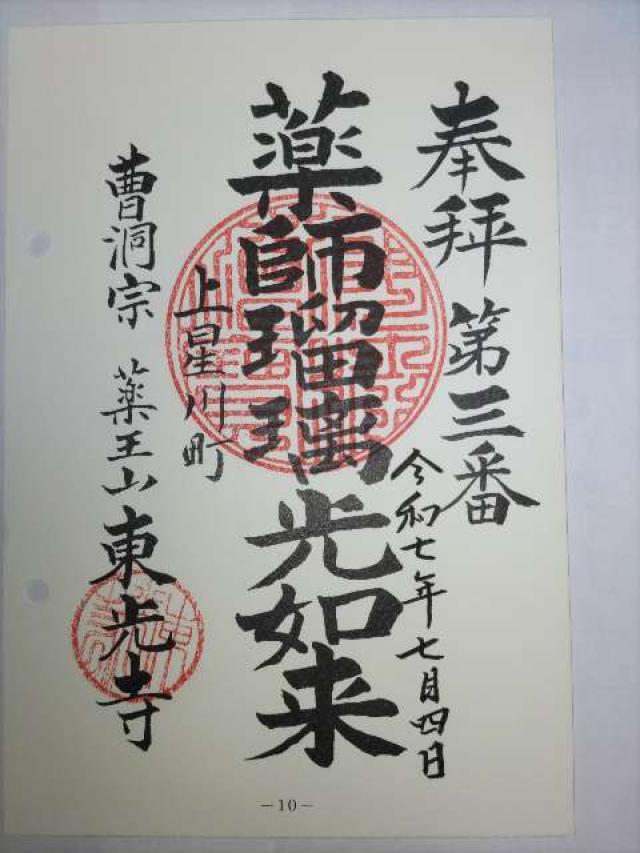 奉拝 第三番
令和七年七月四日
薬師瑠璃光如来
上星川町
曹洞宗 薬王山 東光寺
－10－